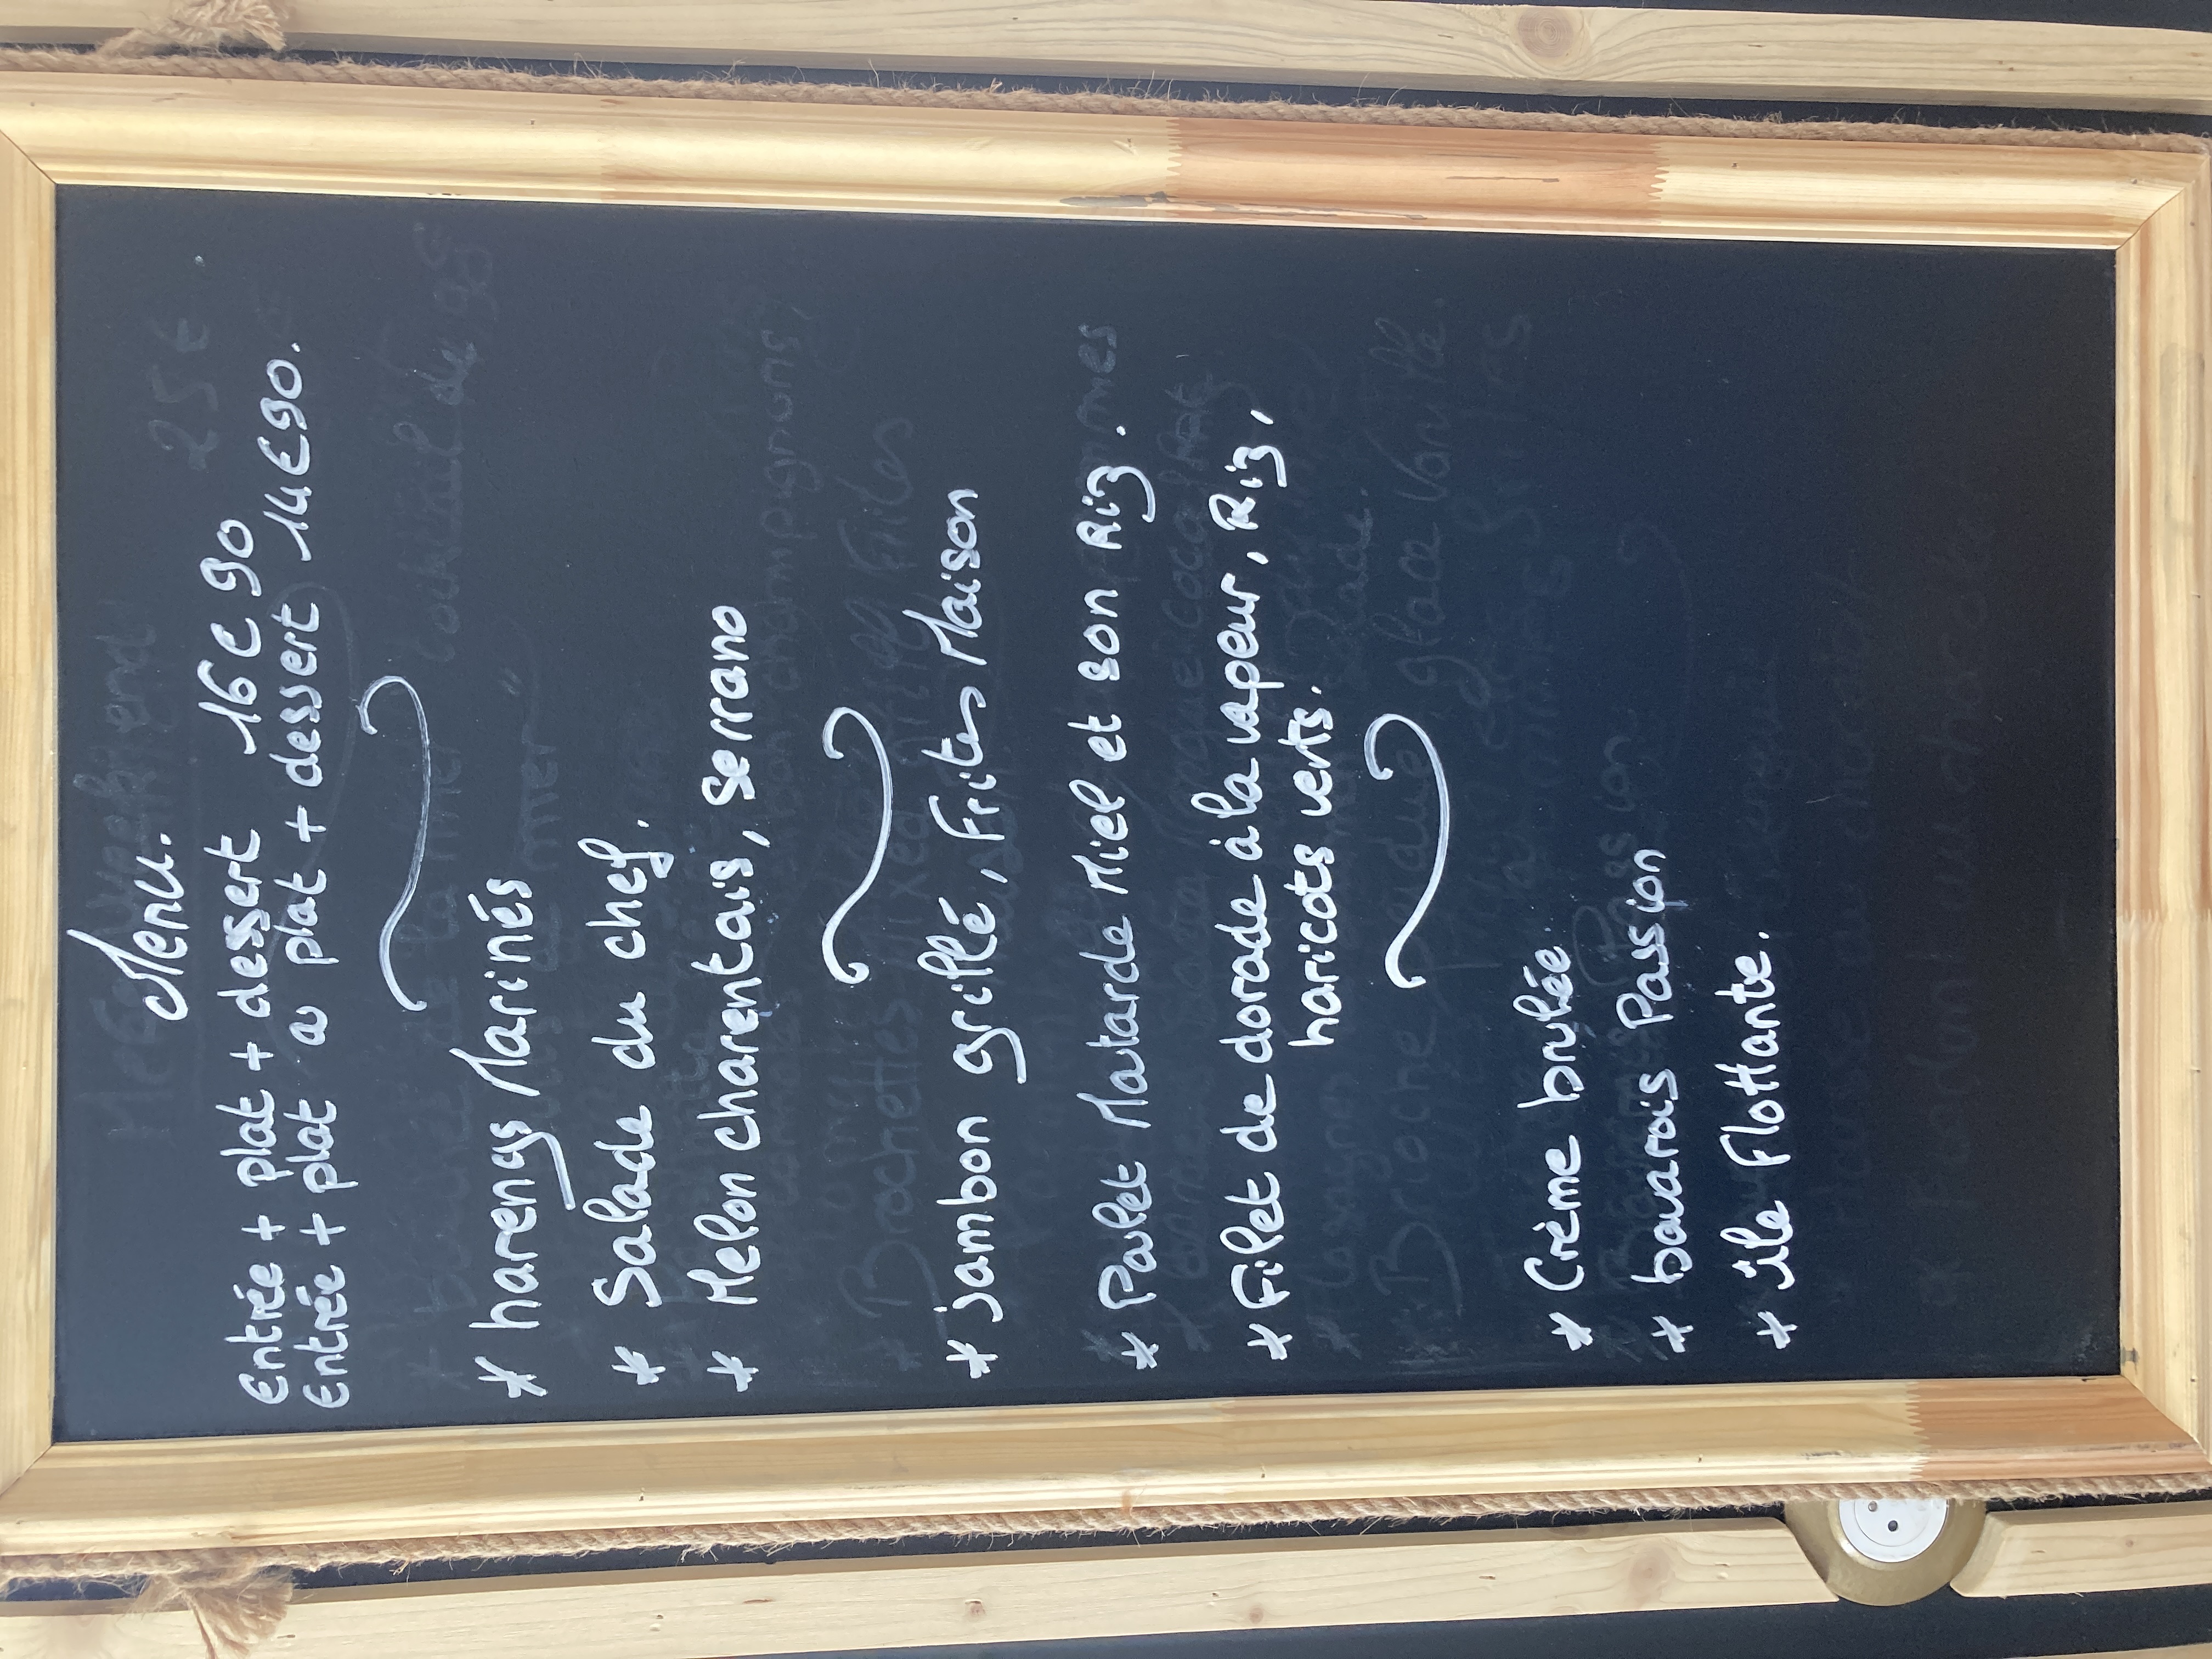 Menu.
Entrée + plat + dessert 16€90
Entrée + plat ou plat + dessert 14€90.
* harengs Marinés
* Salade du chef.
* Melon charentais, serrano
* jambon grillé, Frites Maison
* Poulet Moutarde Miel et son Riz.
* Filet de dorade à la vapeur, Riz,
haricots verts.
* Crème brulée
* bavarois Passion
* île Flottante.